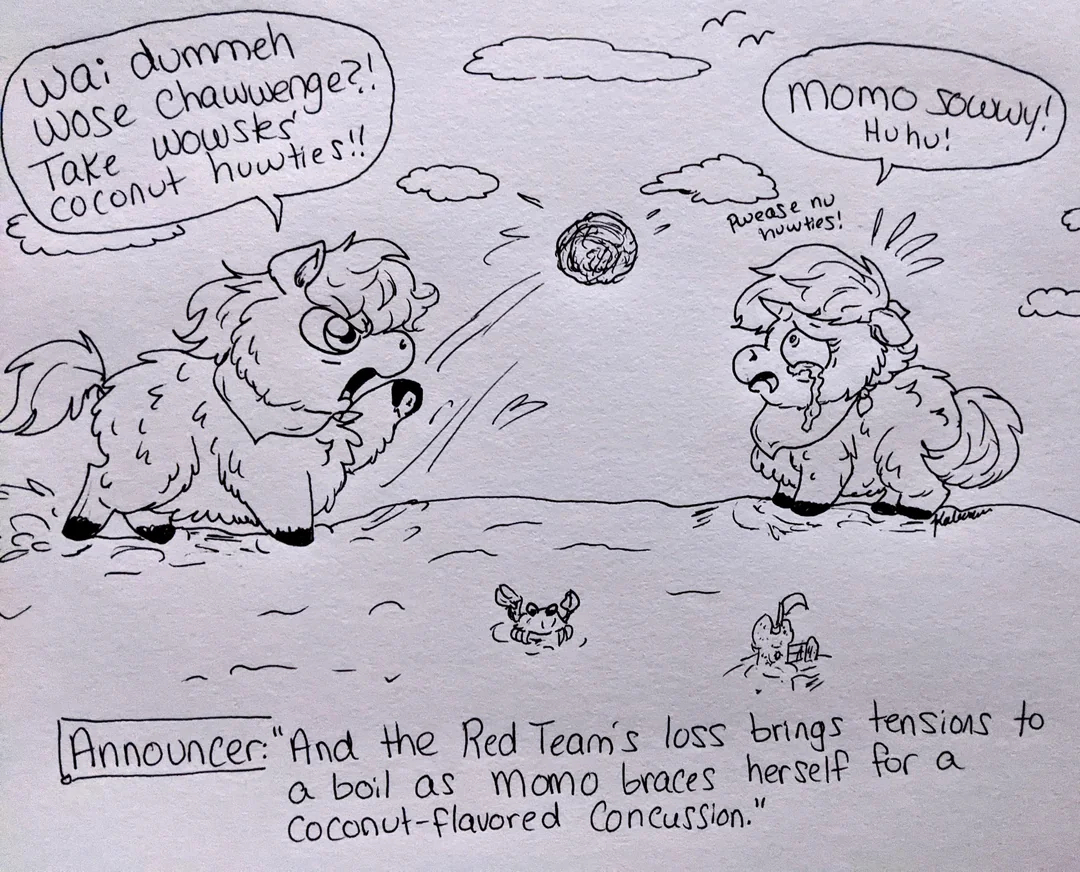 Wai dummeh
wose chawwenge?!
Take wowstes'
coconut huwties!!
momo sowwy!
Huhu!
Pwease nu
huwties!
Announcer: "And the Red Team's loss brings tensions to
a boil as momo braces herself for a
coconut-flavored Concussion."